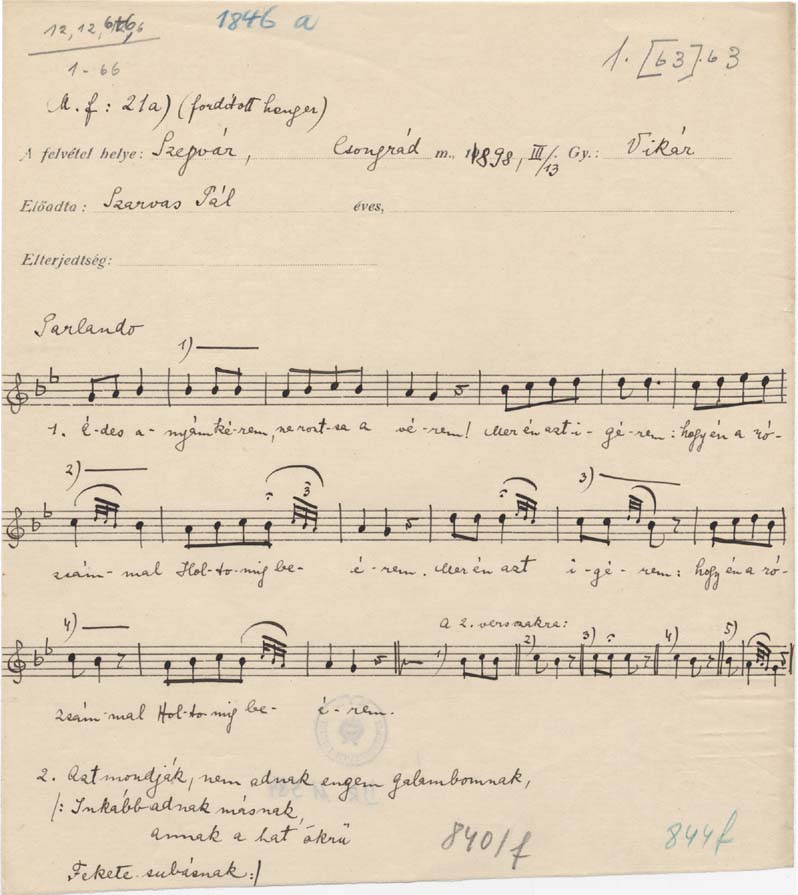 12, 12, 6+6, 6
1846 a
1-66
1. [63].63
M. f: 21a) (fordított henger)
A felvétel helye: Szegvár, Csongrád m., 1898, III/13. Gy.: Vikár
Előadta: Szarvas Pál éves,
Elterjedtség:
Parlando
1)
1. É-des a-nyám ké-rem, ne ront-sa a vé-rem! Mer én azt i-gé-rem: hogy én a ró-
2) 3 3)
zsám-mal Hol-to-mig be-é-rem. Mer én azt i-gé-rem: hogy én a ró-
4) a 2. versszakra: 1) 2) 3) 4) 5)
zsám-mal Hol-to-mig be-é-rem.
2. Azt mondják, nem adnak engem galambomnak,
/: Inkább adnak másnak,
annak a hat ökrű
Fekete subásnak :/
840/f
844f